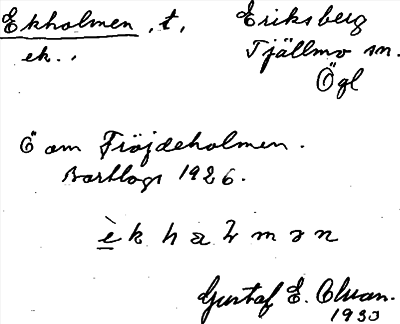 Ekholmen, t, Eriksberg
ek., Tjällmo sn.
Ögl
Ö om Fröjdeholmen.
Bortlogs 1926.
è k h a l m ə n
Gustaf E. Olvan.
1933